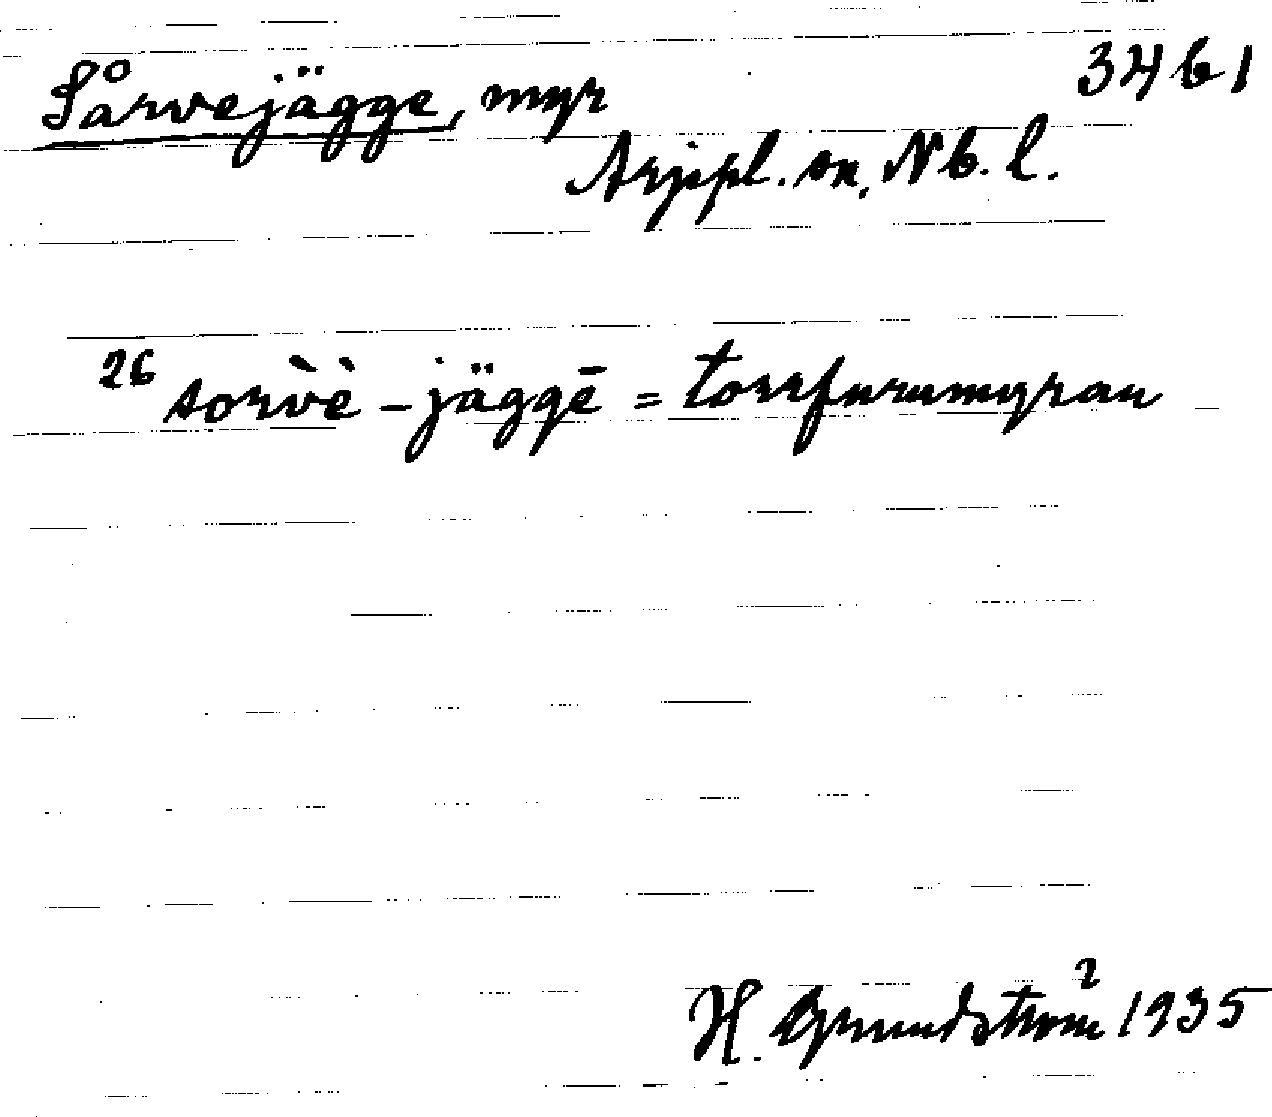 Sårvejägge, myr 3461
Arjepl. sn, Nb. l.
26 sorvè̀ - jäggē = torrfurumyran
H. Grundström 1935